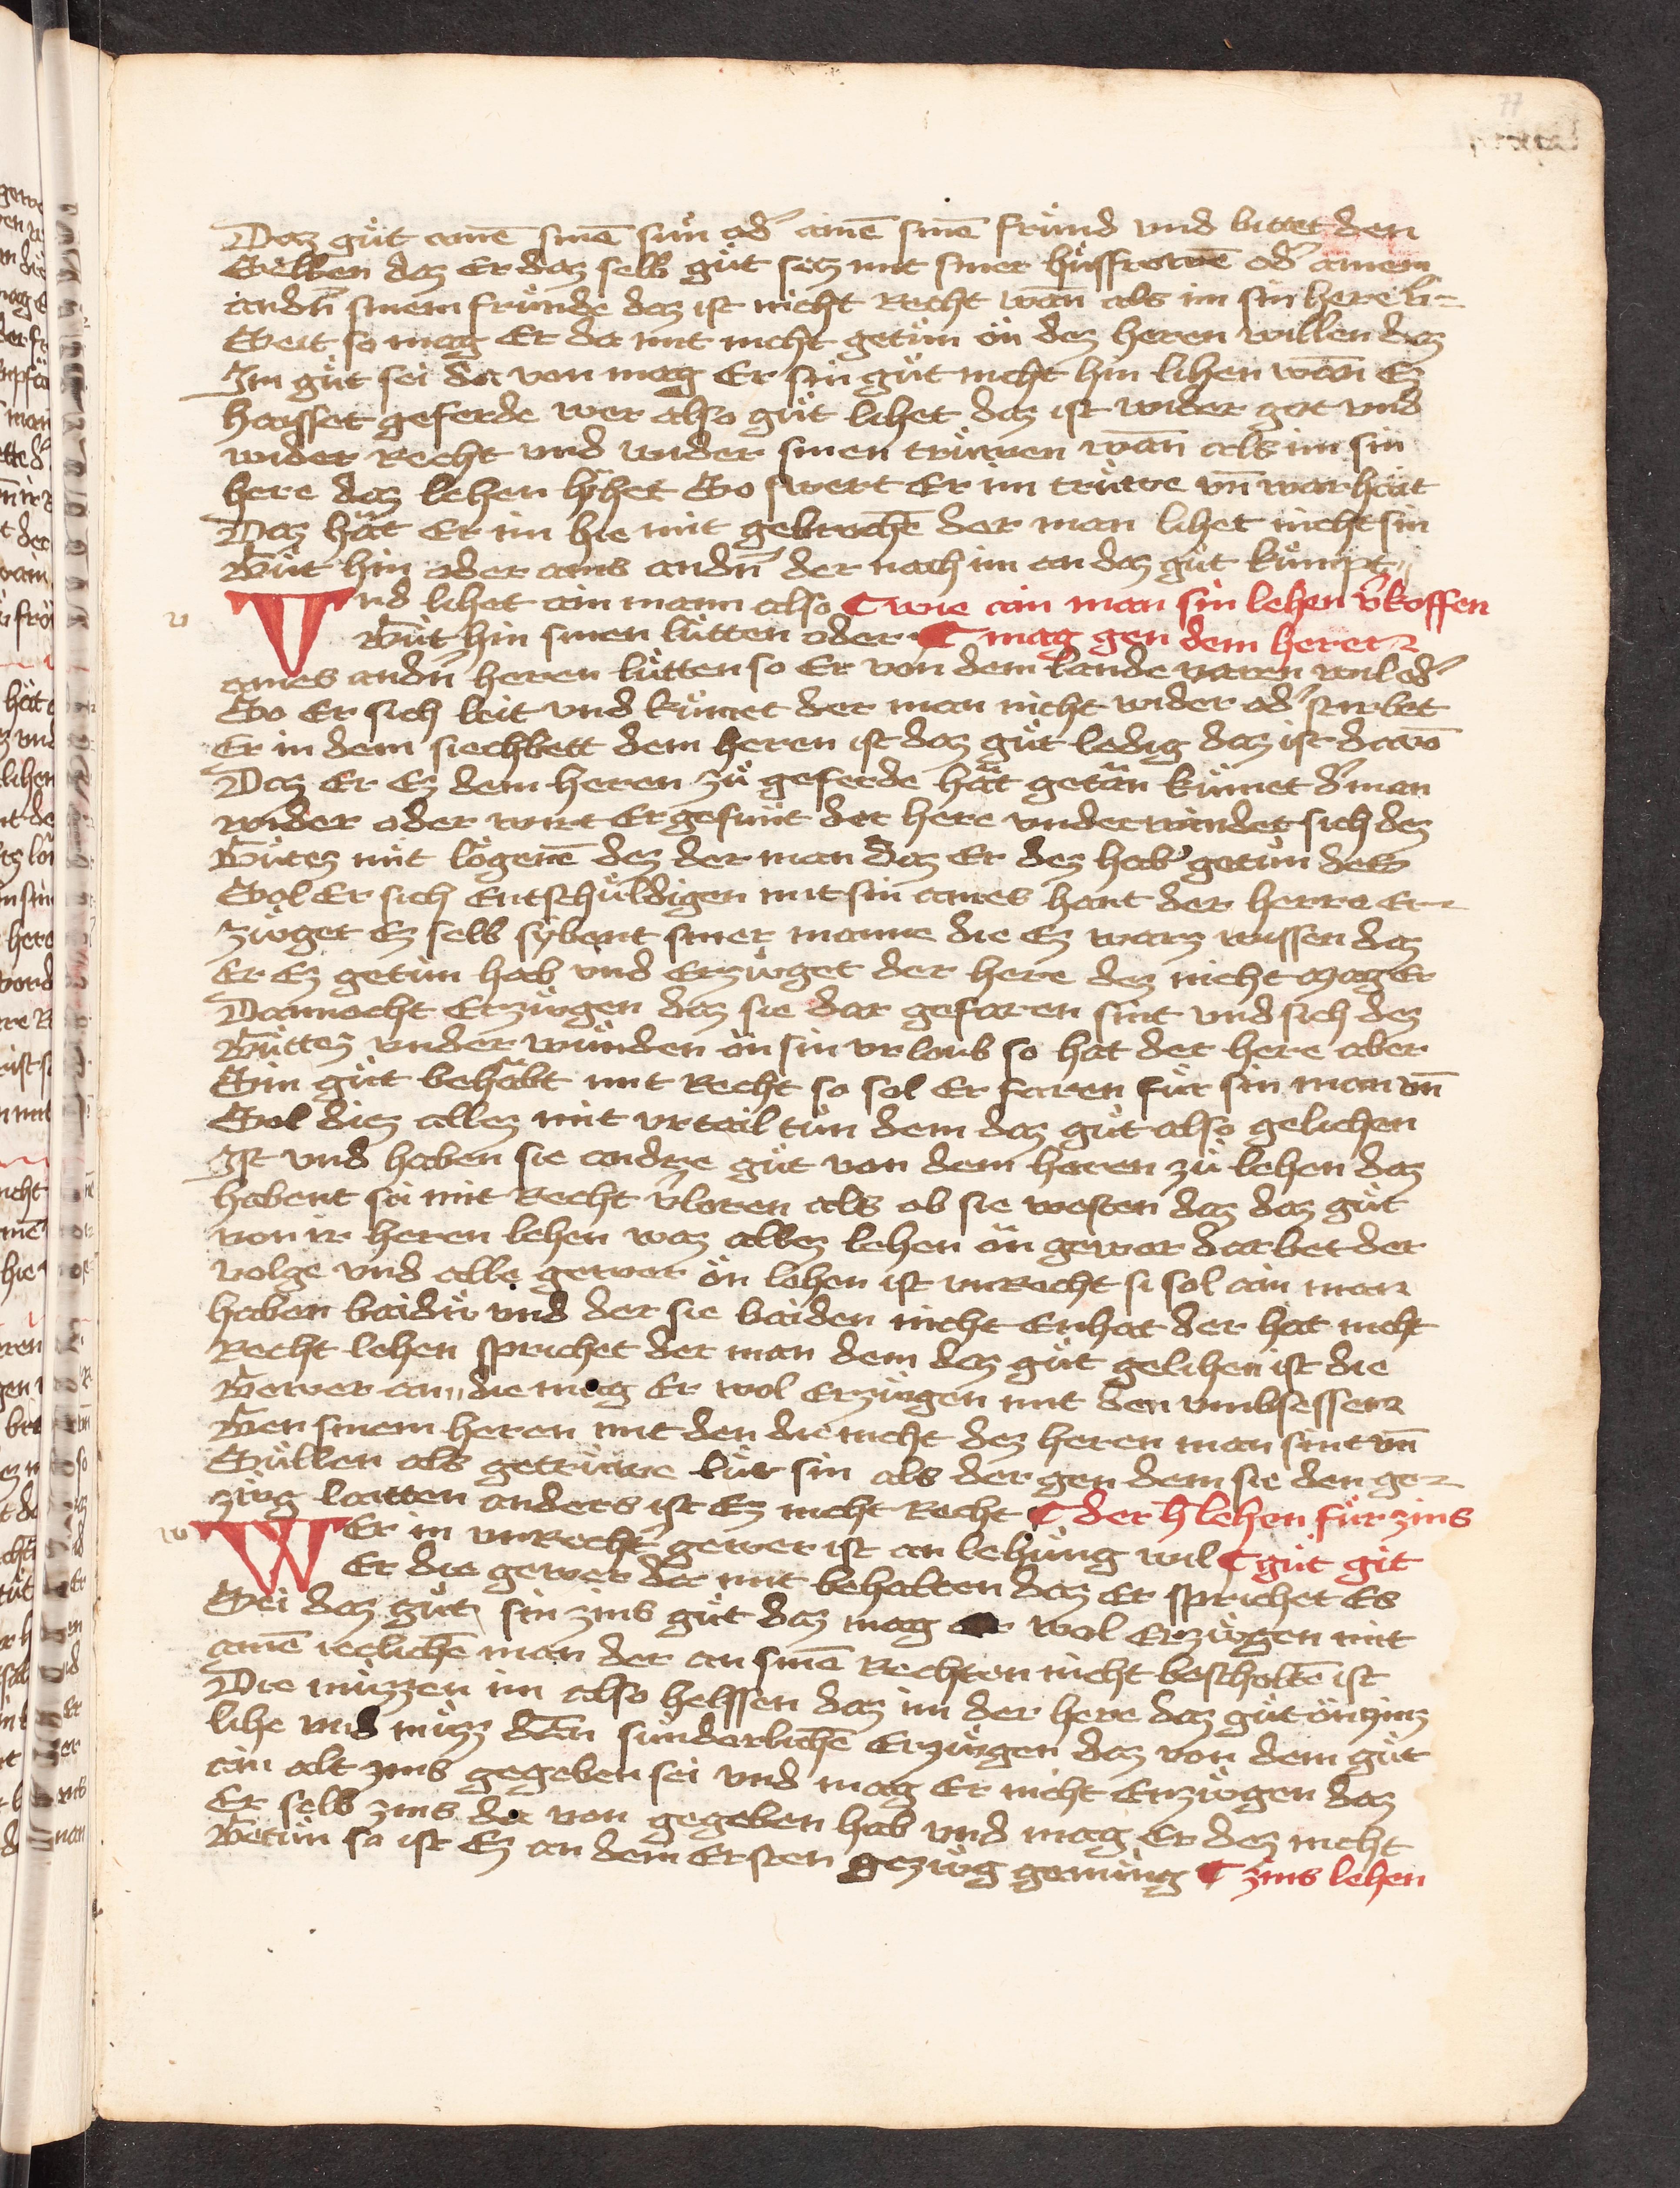 77
Daz gůt ainē sinē sůn odˀ ainē sinē frůnd vnd bittet den
Selben daz Er daz selb gůt setz mit siner hußfrowē odˀ ainem
andrn̄ sinem frůnde daz ist nicht Recht wan̄ als im sin here li-
Geit so mag Er da mit nicht getůn ön dez heren willen daz
Im gůt sei da von mag Er sin gůt nicht hin lihen wan̄ Ez
haisset geferde wer also gůt lihet daz ist wider got vnd
wider Recht vnd wider sinen trůwen wan̄ als im sin
here daz lehen lyhet So swert Er im trůwe vn̄ warhäit
Daz hät Er im hie mit gebrochē der man lihet nicht sin
Gůt hin oder ains andrn̄ der nach im an daz gůt kůmpt
Vnd lihet ain mann also ¶ wie ain man sin lehen v̄koffen
Gůt hin sinen lůtten oder ¶ mag gen dem heren
aines andrn̄ heren lůtten so Er von dem lande varen wil odˀ
So Er sich leit vnd kůmet der man nicht wider odˀ stirbet
Er in dem siechbett dem heren ist daz gůt ledig daz ist dauō
Daz Er Ez dem heren zů geferde hät getän kůmet dˀ man
wider oder wirt Er gesunt der here vnderwindet sich dez
Gůtez mit lögenē dez der man daz Er dez hab getůn dez
Sol Er sich Entschůldigen mit sin aines hant der herre Er-
Zůget Ez selb sybent siner manne die Ez warz wissen daz
Er Ez getůn hab vnd Erzůget der here dez nicht mag Er
Dannocht Erzůgen daz sie dar gefaren sint vnd sich dez
Gůttez vnder wůnden ön sin vrlaub so hat der here aber
Sin gůt behäbt mit Recht so sol Er faren fůr sin man vn̄
Sol diez allez mit vrteil tůn dem daz gůt also gelichen
Ist vnd haben sie andrˀe gůt von dem heren zů lehen daz
habent sie mit Recht v̄loren als ob sie westen daz daz gůt
von ir heren lehen waz allez lehen ön gewer darbet der
volge vnd alle gewer ön lehen ist vnrecht si sol ain man
haben baidů vnd der sie baiden nicht Enhat der hat nicht
Recht lehen sprichet der man dem daz gůt gelihen ist die
Gewer an die mag Er wol Erzůgen mit den vmbsessen
Gen sinem heren mit den die nicht dez heren man sint vn̄
Sůllen als getrůwe lůt sin als der gen dem sie den ge-
zůg laitten anders ist Ez nicht Recht ¶ der h̄ lehen fůr zins
Wer in vnrecht gewer ist an lehůng wil ¶ gůt git
Er die gewer da mit behalten daz Er sprichet Es
Sei daz gůt sin zins gůt daz mag er wol Erzůgen mit
ainē ieclichē man der an sinē Rechten nicht bescholtē ist
Die můzzen im also helffen daz im der here daz gůt ön zinz
lihe vnd můz dän sunderlichē Erzůgen daz von dem gůt
ain alt zins gegeben sei vnd mag Er nicht Erzůgen daz
Er selb zins da von gegeben hab vnd mag Er dez nicht
Getůn so ist Ez an dem Ersten gezůg genůng ¶ zins lehen